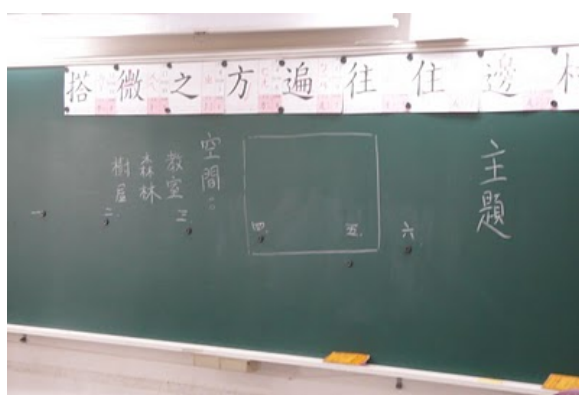 搭微之方遍往住邊村
主題
空間：
教室
森林
樹屋
一
二.
三
四.
五.
六